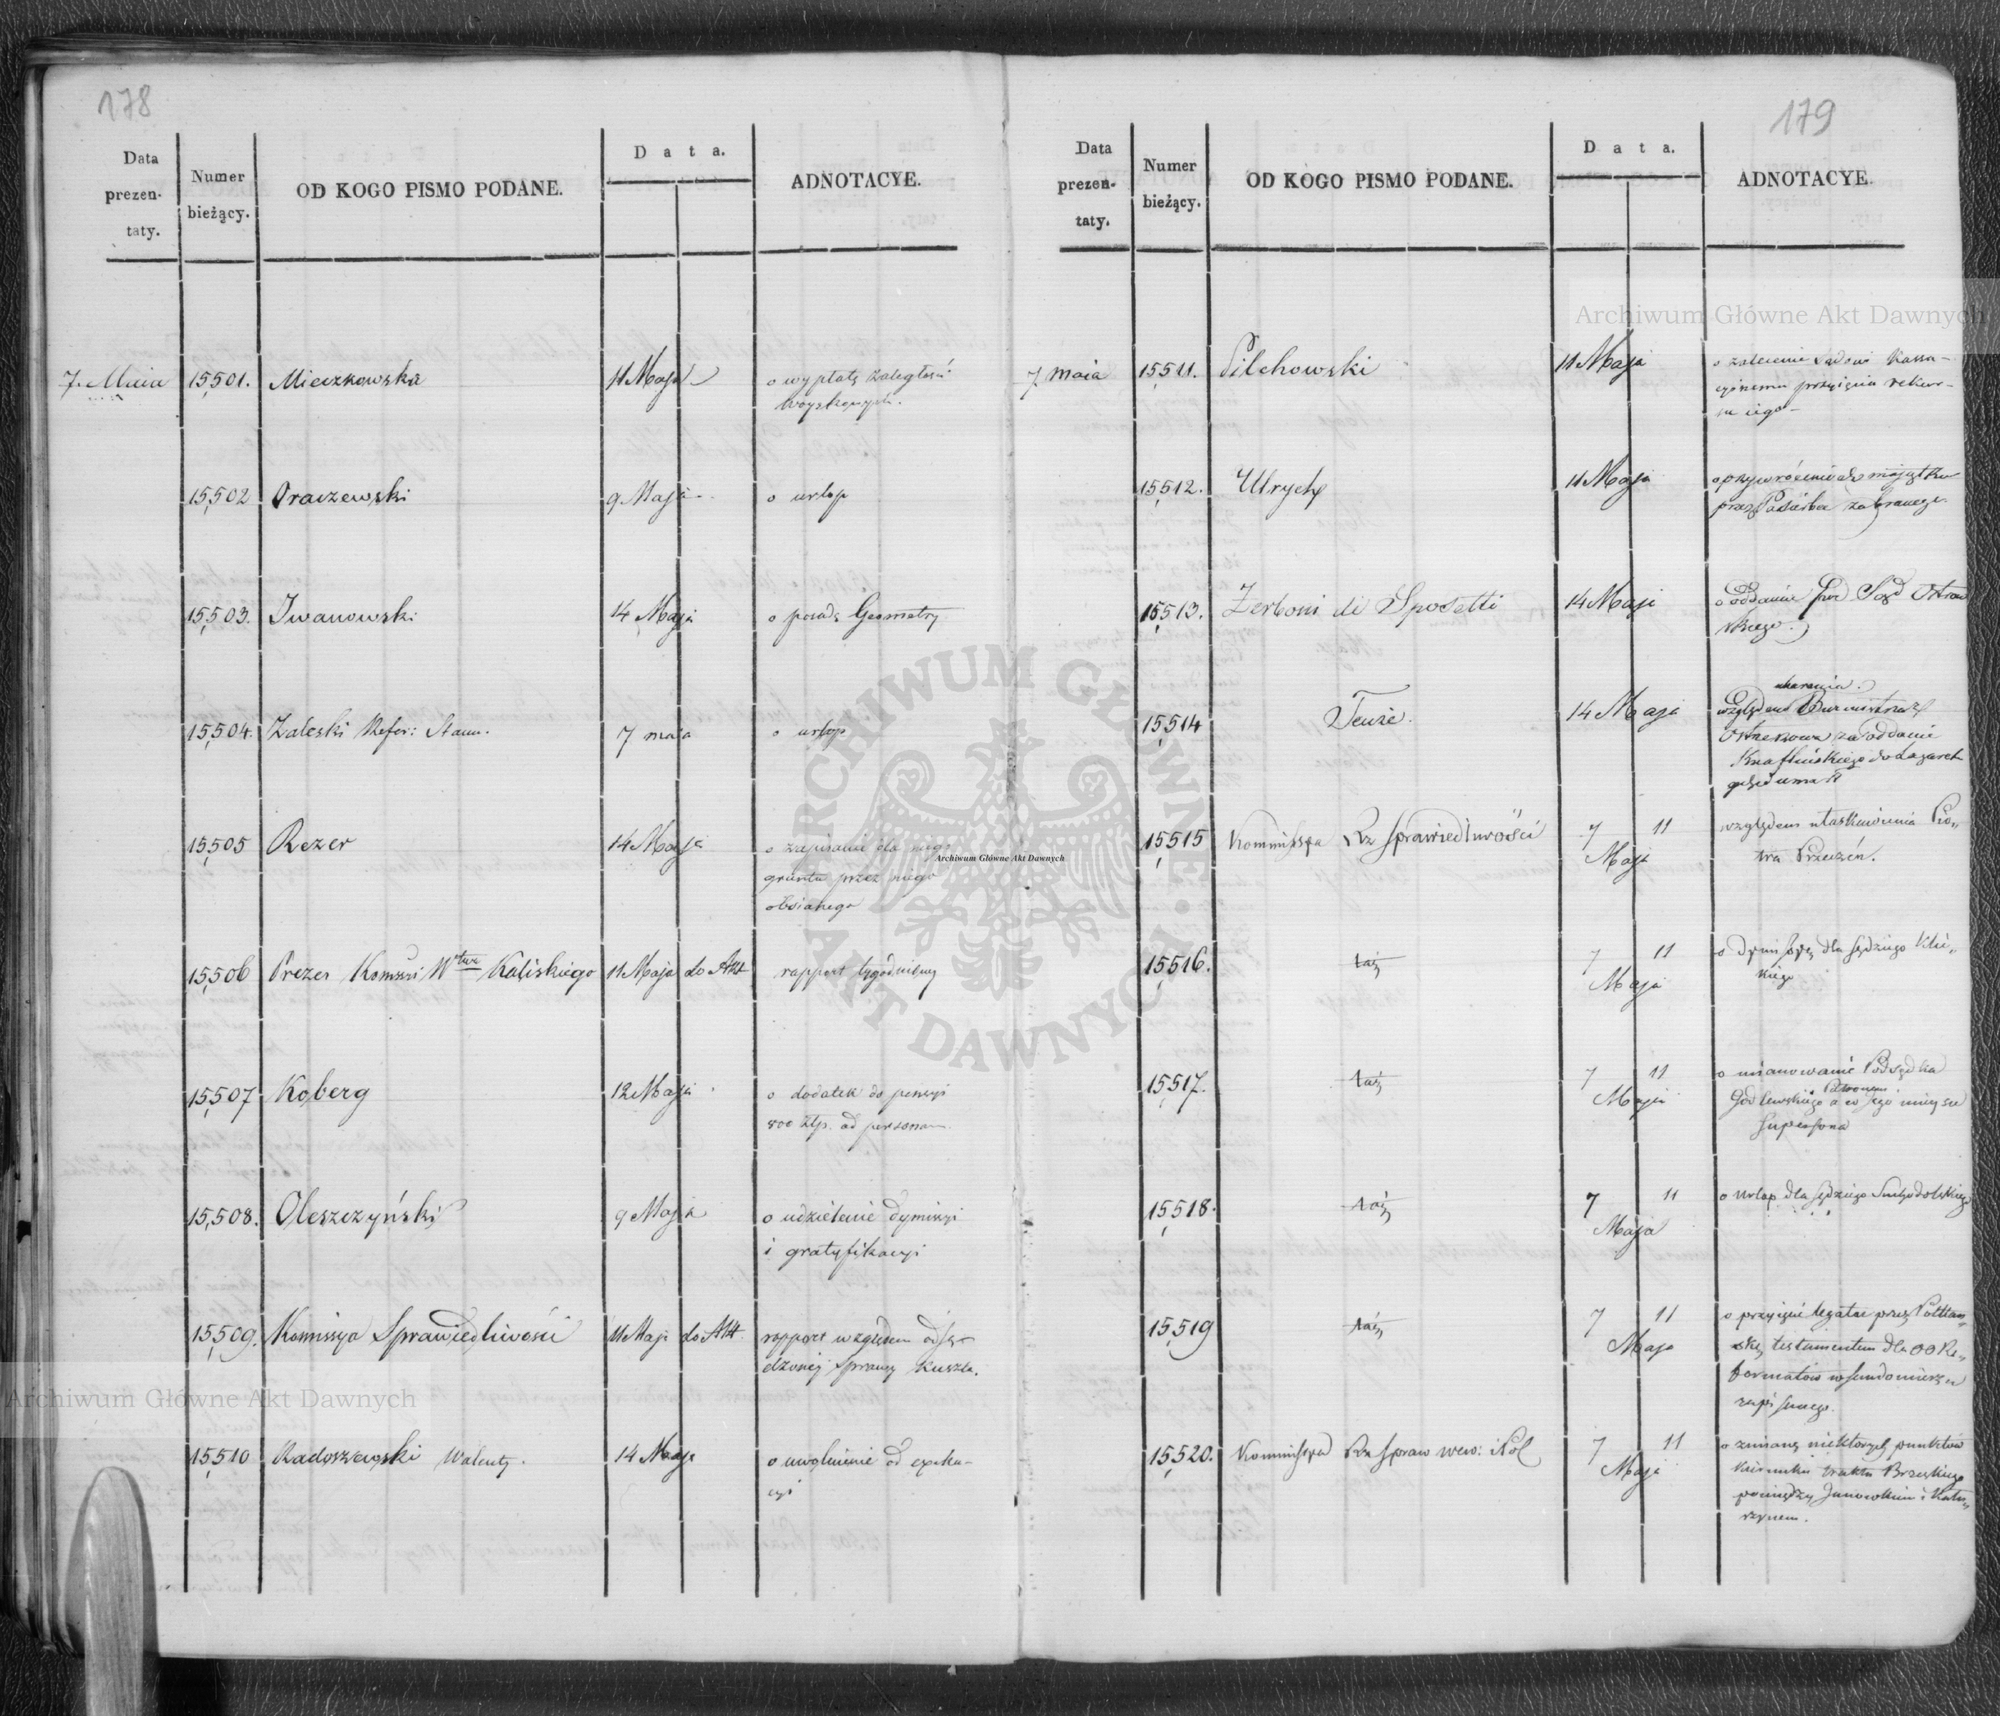 178
Data prezen- taty.
Numer bieżący.
OD KOGO PISMO PODANE.
Data.
ADNOTACYE.
7. Maia 15,501. Mieczkowska 11 Maja o wypłatę zaległości
woyskowych.
15,502 Oraczewski 9 Maja o urlop
15,503. Iwanowski 14 Maja o posadę Geometry
15,504. Zaleski Refer: Stanu. 7 maia o urlop
15,505 Rezer 14 Maja o zapisanie dla niego
gruntu przez niego
obsianego
15,506 Prezes Kommssi Wtwa Kaliskiego 11 Maja do Akt rapport tygodniowy
15,507 Koberg 12 Maja o dodatek do pensyi
800 Złp. ad personam
15,508. Oleszczyński 9 Maja o udzielenie dymissyi
i gratyfikacyi
15,509. Komissya Sprawiedliwości 11 Maja do Akt rapport względem odsą-
dzonej sprawy Kuszla.
15,510 Radoszewski Walenty. 14 Maja o uwolnienie od exeku-
cyi
179
Data prezen- taty.
Numer bieżący.
OD KOGO PISMO PODANE.
Data.
ADNOTACYE.
7 maia 15,511. Pilchowski 11 Maja o zalecenie Sądowi Kassa-
cyinemu przyięcia rekur-
su iego
15,512. Ulrych 11 Maja o przywrócenie do majątku
przez zabranego
15,513. Zerboni di Sposetti 14 Maja o oddanie pod Sąd
15,514 Tenże. 14 Maja ukarania.
względem Burmistrza
za oddanie
do Lazaret
15,515 Kommissya Rz Sprawiedliwości 7 11 Maja względem ułaskawienia Pio-
tra
15,516. taż 7 11 Maja o dymissyę dla sędziego
15,517. taż 7 11 Maja o mianowanie Podsędka
Godlewskiego Patronem a w jego mieysce
15,518. taż 7 11 Maja o urlop dla sędziego Suchodolskiego
15,519 taż 7 11 Maja o przyięcie legatu przez
testamentem dla OO Re-
formatów w Sandomierzu
zapisanego.
15,520. Kommissya Rz Spraw wew: i Pol 7 11 Maja o zmianę niektorych punktów
kierunku traktu Brzeskiego
pomiędzy Janowkim i Kału-
szynem.
Archiwum Główne Akt Dawnych
Archiwum Główne Akt Dawnych
Archiwum Główne Akt Dawnych
ARCHIWUM GŁÓWNE AKT DAWNYCH